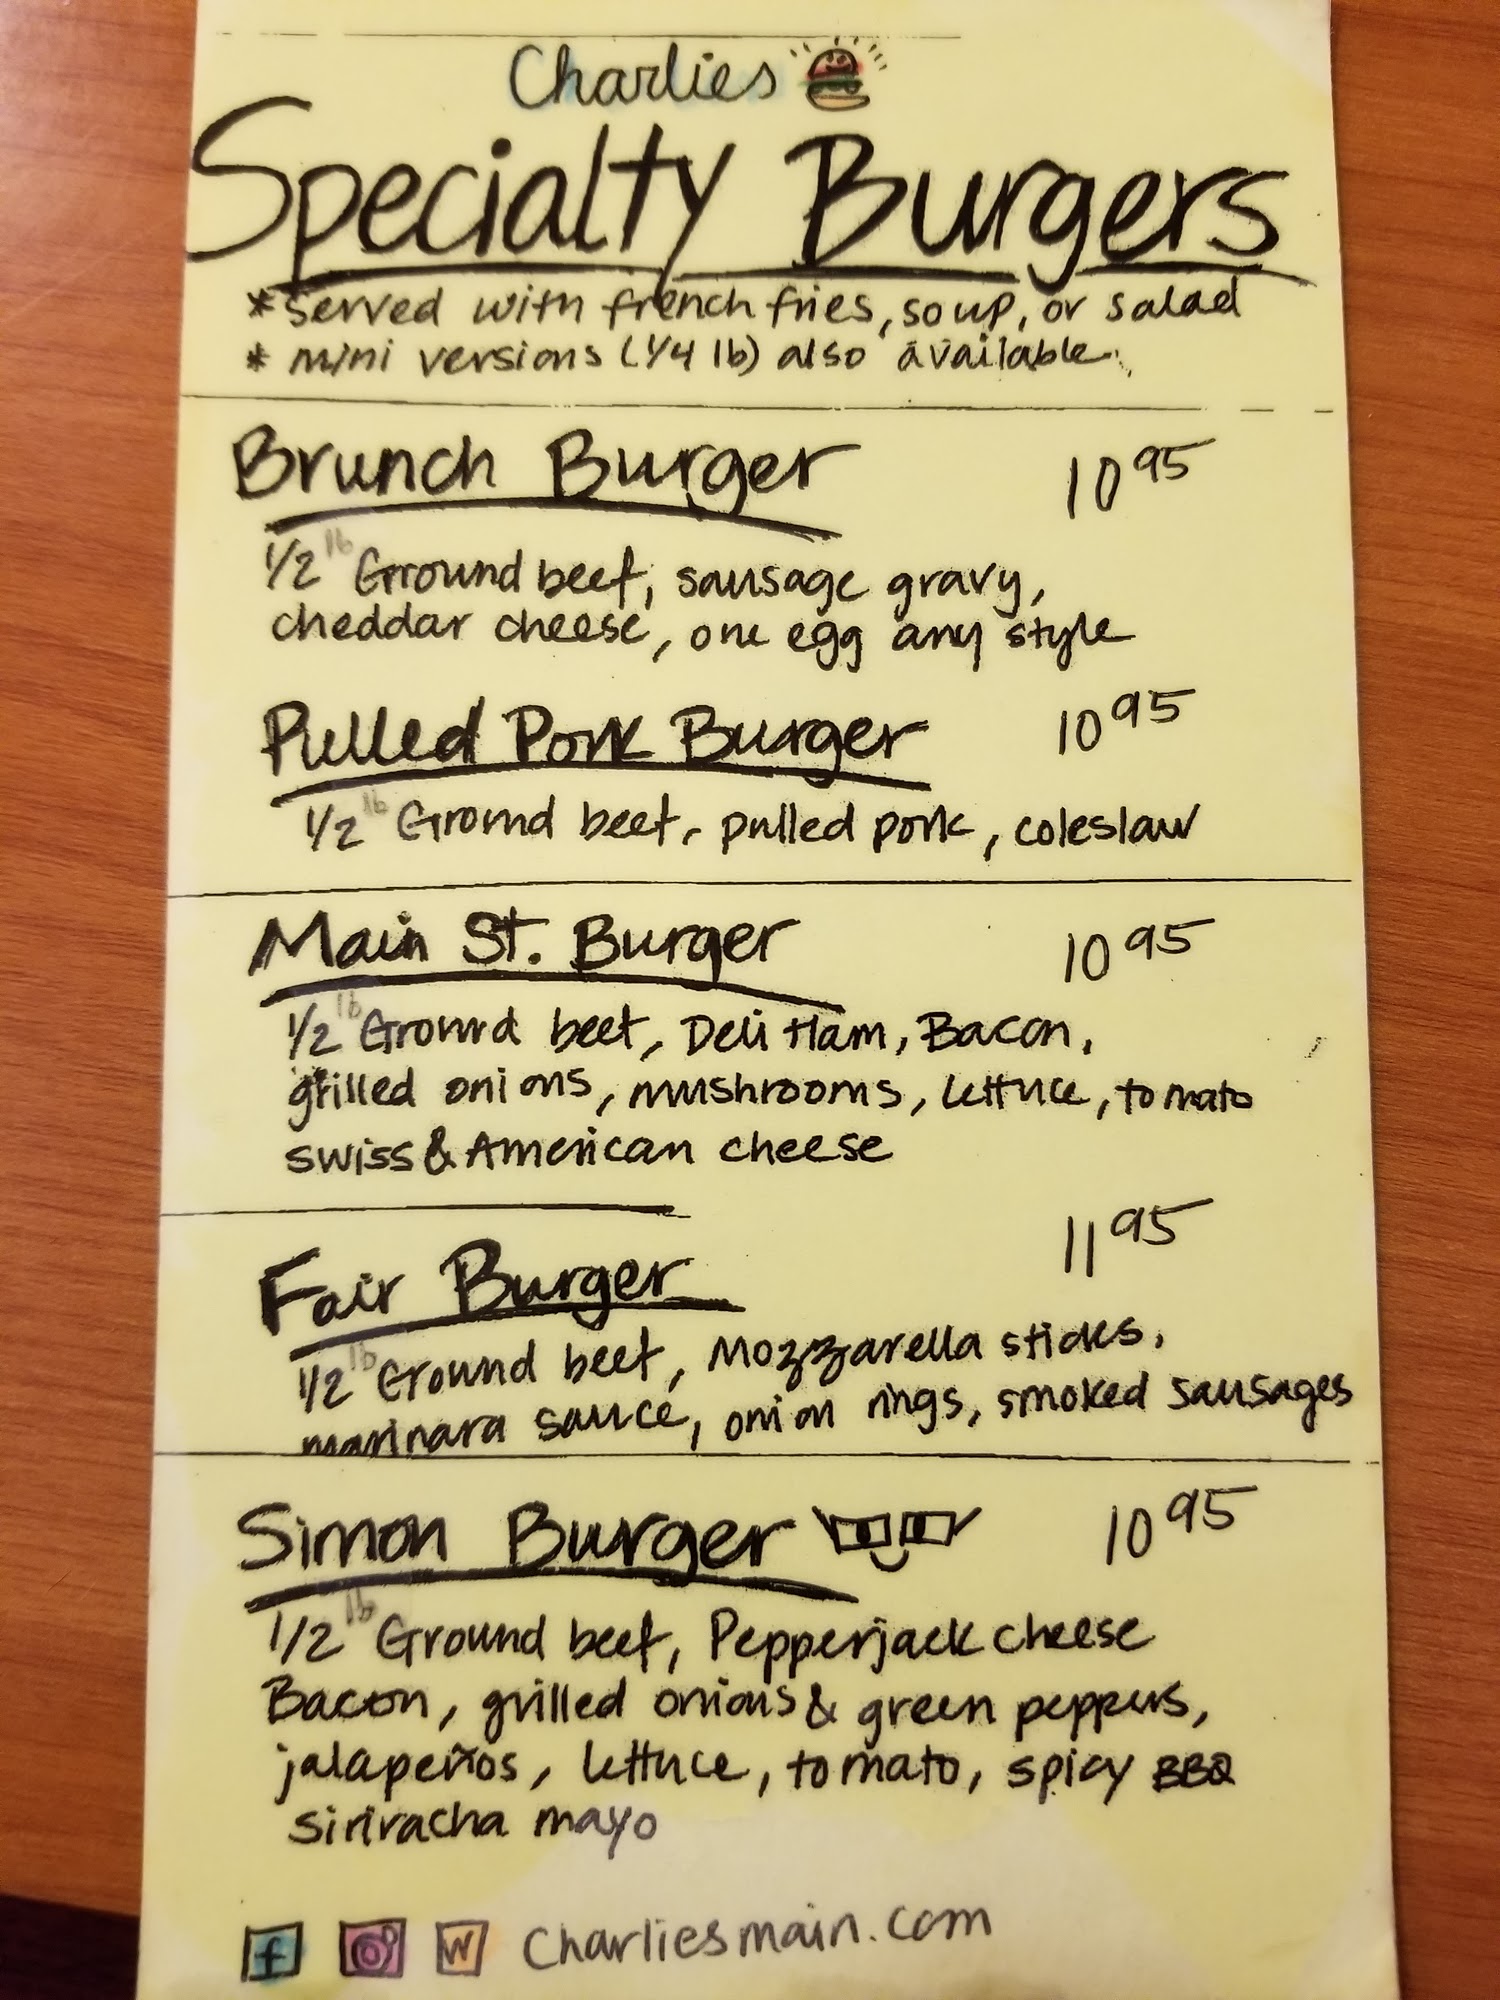 Charlies
Specialty Burgers
*served with french fries, soup, or salad
* mini versions (1/4 lb) also available
Brunch Burger 10 95
1/2 lb Ground beef, sausage gravy,
cheddar cheese, one egg any style
Pulled Pork Burger 10 95
1/2 lb Ground beef, pulled pork, coleslaw
Main St. Burger 10 95
1/2 lb Ground beef, Deli Ham, Bacon,
grilled onions, mushrooms, lettuce, tomato
swiss & American cheese
Fair Burger 11 95
1/2 lb Ground beef, Mozzarella sticks,
marinara sauce, onion rings, smoked sausages
Simon Burger 10 95
1/2 lb Ground beef, Pepperjack cheese
Bacon, grilled onions & green peppers,
jalapeños, lettuce, tomato, spicy BBQ
siriracha mayo
f W Charliesmain.com